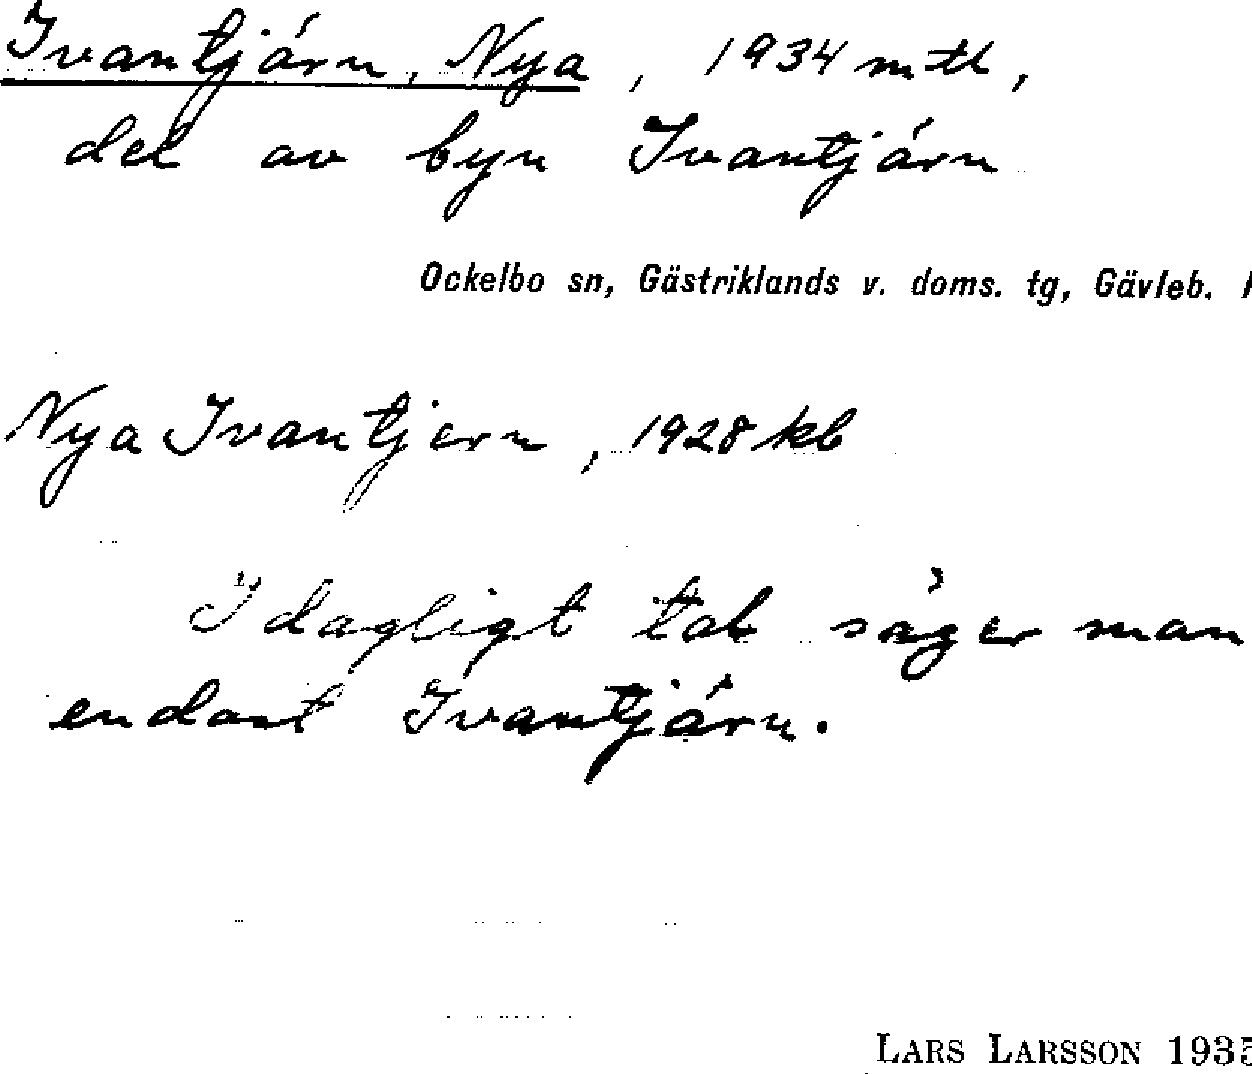 Ivantjärn, Nya, 1934 mtl,
del av byn Ivantjärn
Ockelbo sn, Gästriklands v. doms. tg, Gävleb.
Nya Ivantjern, 1928 kb
I dagligt tal säger man
endast Ivantjärn.
LARS LARSSON 1935